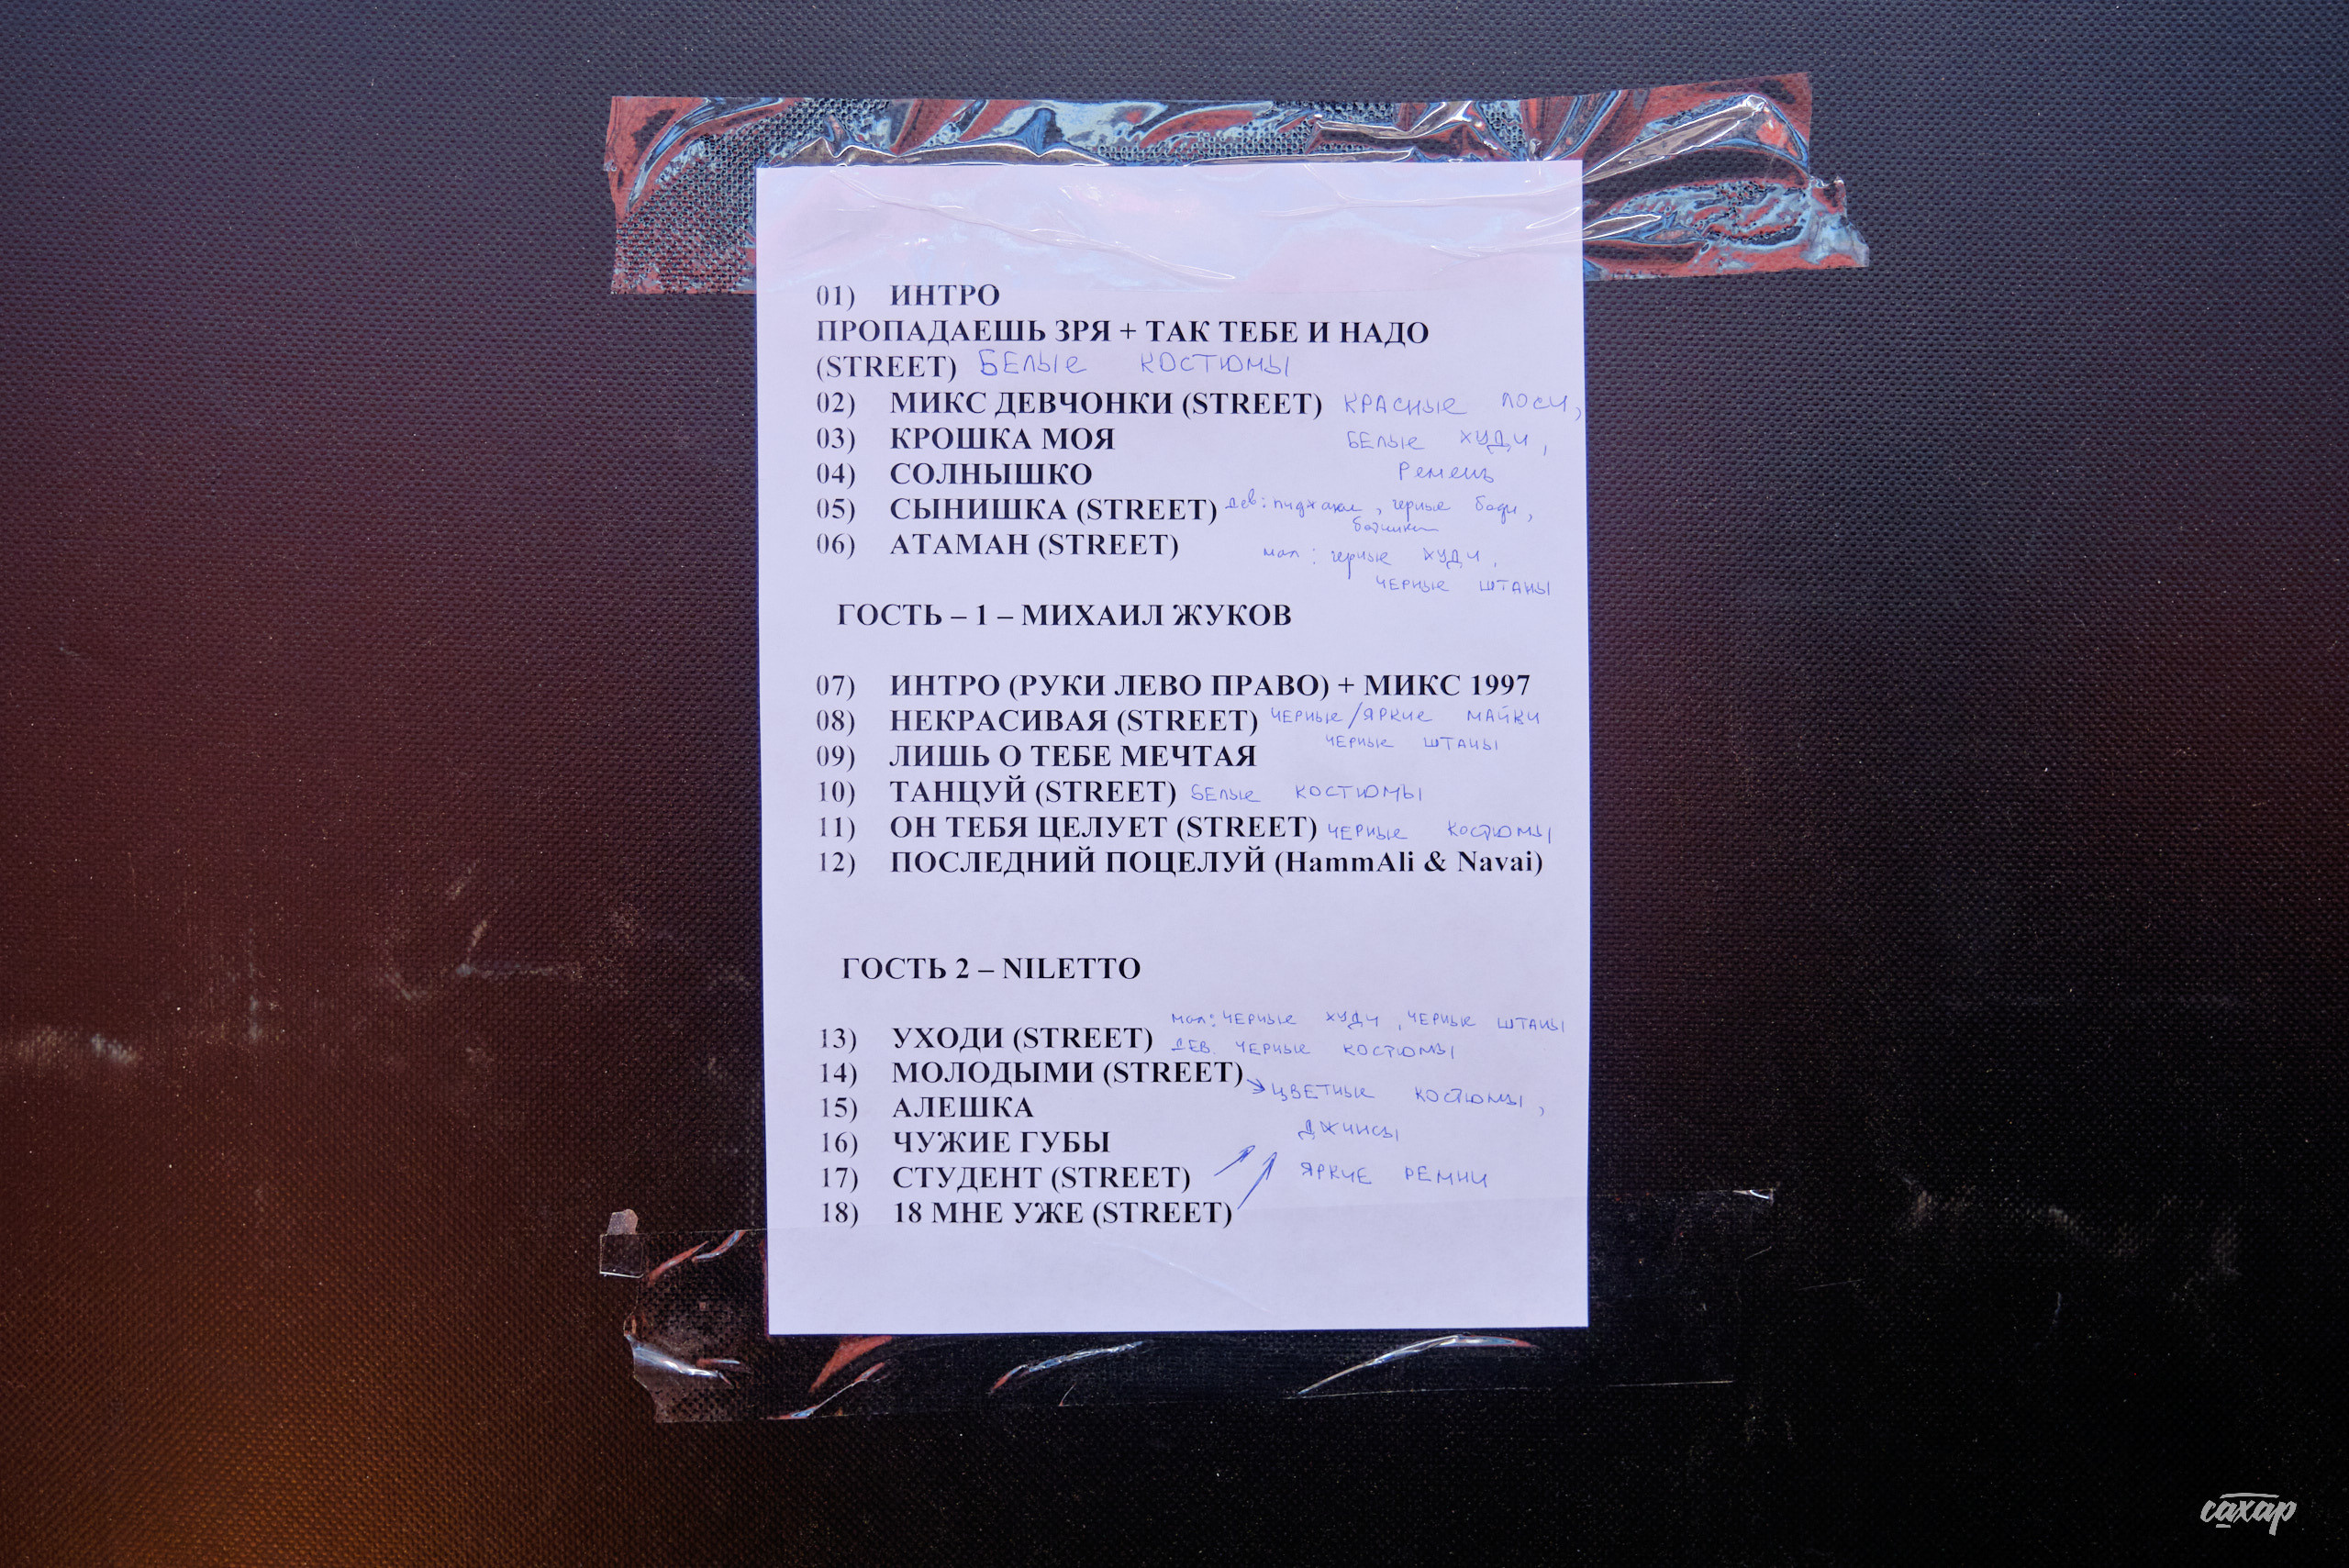 01) ИНТРО
ПРОПАДАЕШЬ ЗРЯ + ТАК ТЕБЕ И НАДО
(STREET) БЕлые костюмы
02) МИКС ДЕВЧОНКИ (STREET) КРАСНЫе лоси,
03) КРОШКА МОЯ БЕлые худи,
04) СОЛНЫШКО Ремень
05) СЫНИШКА (STREET) дев: пиджаки, черные боди,
ботинки
06) АТАМАН (STREET) мал: черные худи,
ЧЕРНЫе штаны
ГОСТЬ – 1 – МИХАИЛ ЖУКОВ
07) ИНТРО (РУКИ ЛЕВО ПРАВО) + МИКС 1997
08) НЕКРАСИВАЯ (STREET) ЧЕРНЫе/ЯРКИе МАЙКИ
ЧЕРНЫе ШТАНЫ
09) ЛИШЬ О ТЕБЕ МЕЧТАЯ
10) ТАНЦУЙ (STREET) БЕлые КОСТЮМЫ
11) ОН ТЕБЯ ЦЕЛУЕТ (STREET) ЧЕРНЫе КОСТЮМЫ
12) ПОСЛЕДНИЙ ПОЦЕЛУЙ (HammAli & Navai)
ГОСТЬ 2 – NILETTO
мал: ЧЕРНЫе худи, ЧЕРНЫе ШТАНЫ
13) УХОДИ (STREET) ДЕВ. ЧЕРНЫе КОСТЮМЫ
14) МОЛОДЫМИ (STREET) → ЦВЕТНЫе КОСТЮМЫ,
15) АЛЕШКА ДЖИНСЫ
16) ЧУЖИЕ ГУБЫ
17) СТУДЕНТ (STREET) ЯРКИЕ РЕМНИ
18) 18 МНЕ УЖЕ (STREET)
сахар